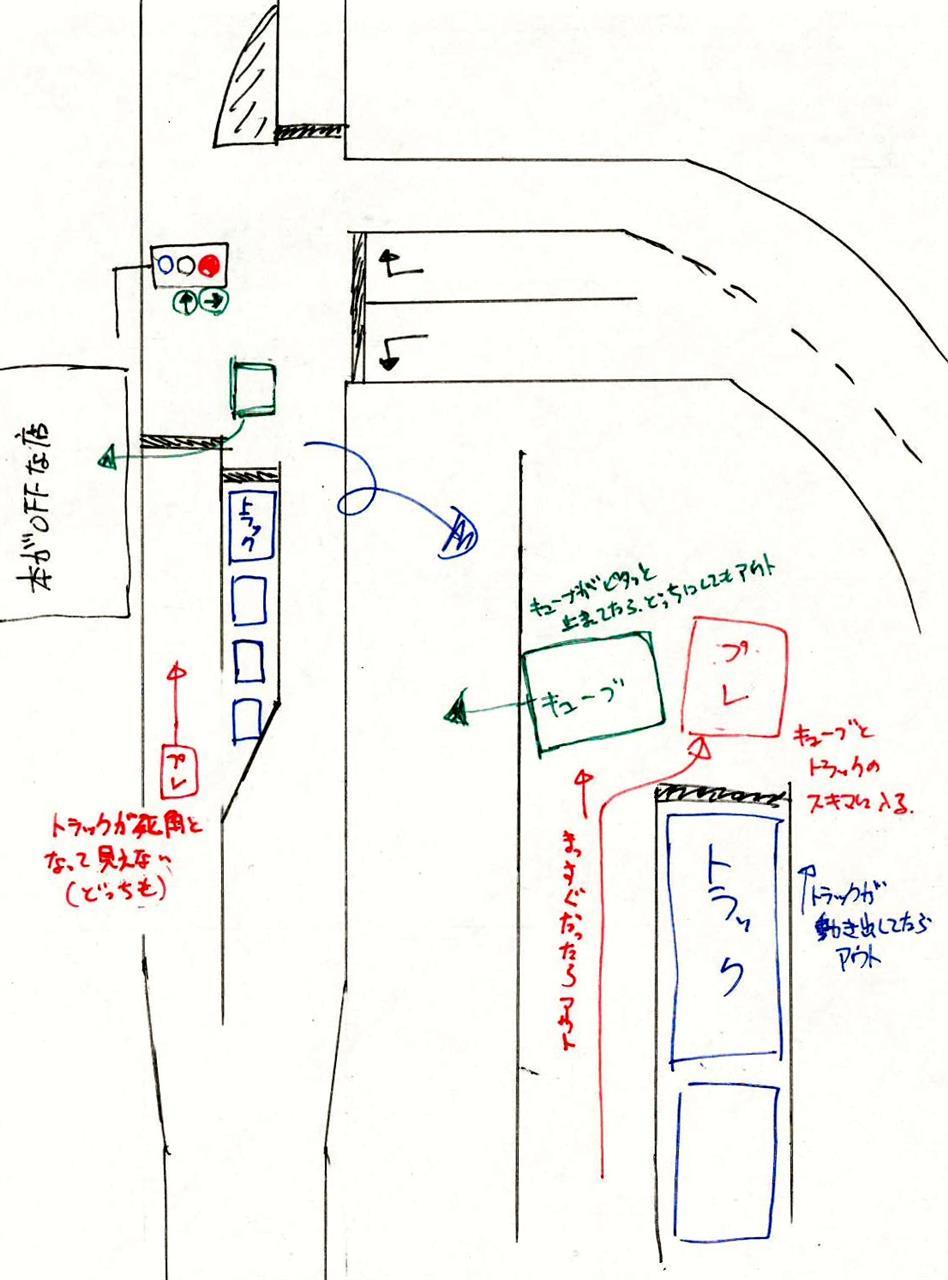 本がOFFな店
トラック
プレ
トラックが死角と
なって見えない
(どっちも)
キューブがピタッと
止まってたら、どっちにしてもアウト
キューブ
プレ
キューブと
トラックの
スキマに入る.
まっすぐだったらアウト
トラック
トラックが
動き出してたら
アウト